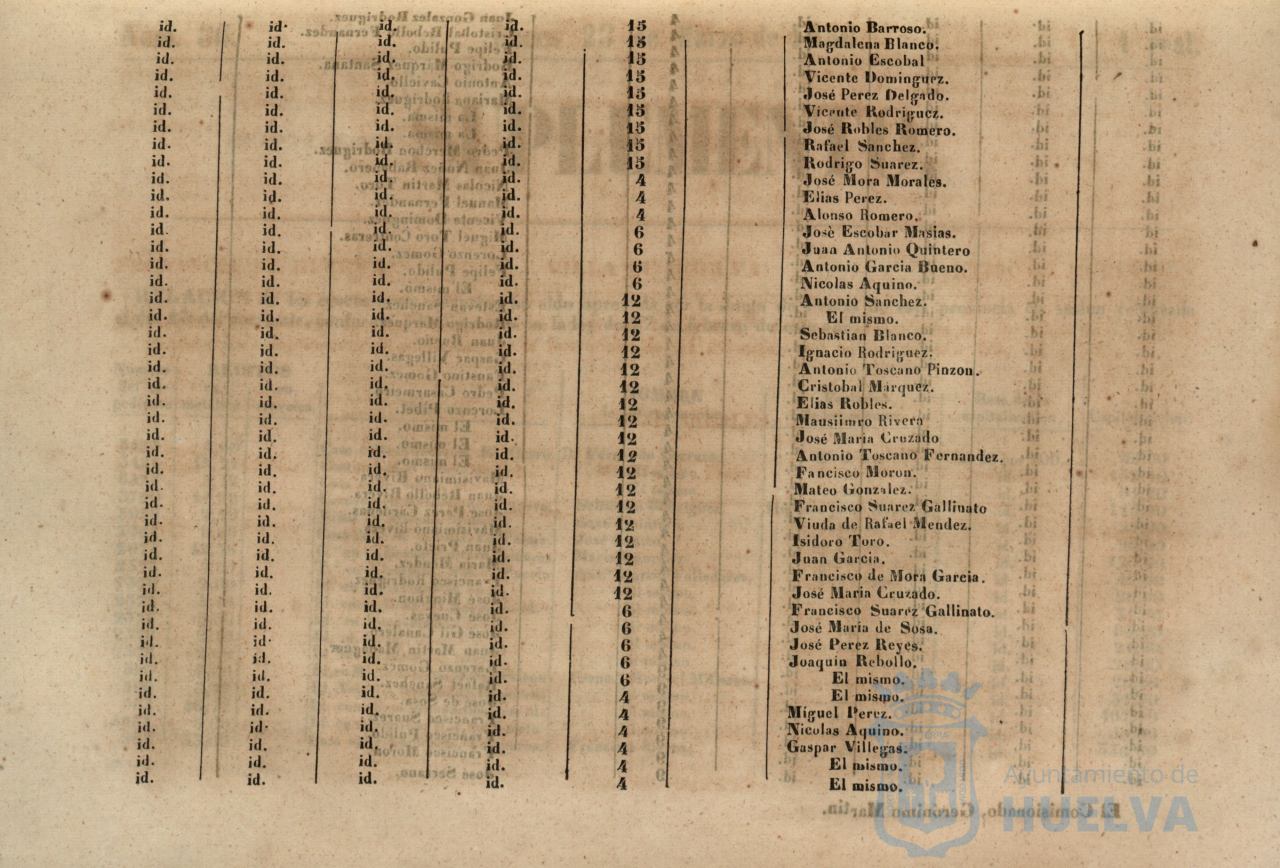 id. id. id. id. 15 Antonio Barroso.
id. id. id. id. 15 Magdalena Blanco.
id. id. id. id. 15 Antonio Escobal
id. id. id. id. 15 Vicente Dominguez.
id. id. id. id. 15 José Perez Delgado.
id. id. id. id. 15 Vicente Rodriguez.
id. id. id. id. 15 José Robles Romero.
id. id. id. id. 15 Rafael Sanchez.
id. id. id. id. 15 Rodrigo Suarez.
id. id. id. id. 4 José Mora Morales.
id. id. id. id. 4 Elias Perez.
id. id. id. id. 4 Alonso Romero.
id. id. id. id. 6 Josè Escobar Masias.
id. id. id. id. 6 Juan Antonio Quintero
id. id. id. id. 6 Antonio Garcia Bueno.
id. id. id. id. 6 Nicolas Aquino.
id. id. id. id. 12 Antonio Sanchez.
id. id. id. id. 12 El mismo.
id. id. id. id. 12 Sebastian Blanco.
id. id. id. id. 12 Ignacio Rodriguez.
id. id. id. id. 12 Antonio Toscano Pinzon.
id. id. id. id. 12 Cristobal Marquez.
id. id. id. id. 12 Elias Robles.
id. id. id. id. 12 Mausiimro Rivera
id. id. id. id. 12 José Maria Cruzado
id. id. id. id. 12 Antonio Toscano Fernandez.
id. id. id. id. 12 Fancisco Moron.
id. id. id. id. 12 Mateo Gonzalez.
id. id. id. id. 12 Francisco Suarez Gallinato
id. id. id. id. 12 Viuda de Rafael Mendez.
id. id. id. id. 12 Isidoro Toro.
id. id. id. id. 12 Juan Garcia.
id. id. id. id. 12 Francisco de Mora Garcia.
id. id. id. id. 12 José Maria Cruzado.
id. id. id. id. 6 Francisco Suarez Gallinato.
id. id. id. id. 6 José Maria de Sosa.
id. id. id. id. 6 José Perez Reyes.
id. id. id. id. 6 Joaquin Rebollo.
id. id. id. id. 6 El mismo.
id. id. id. id. 4 El mismo.
id. id. id. id. 4 Miguel Perez.
id. id. id. id. 4 Nicolas Aquino.
id. id. id. id. 4 Gaspar Villegas.
id. id. id. id. 4 El mismo.
id. id. id. id. 4 El mismo.
Ayuntamiento de
HUELVA